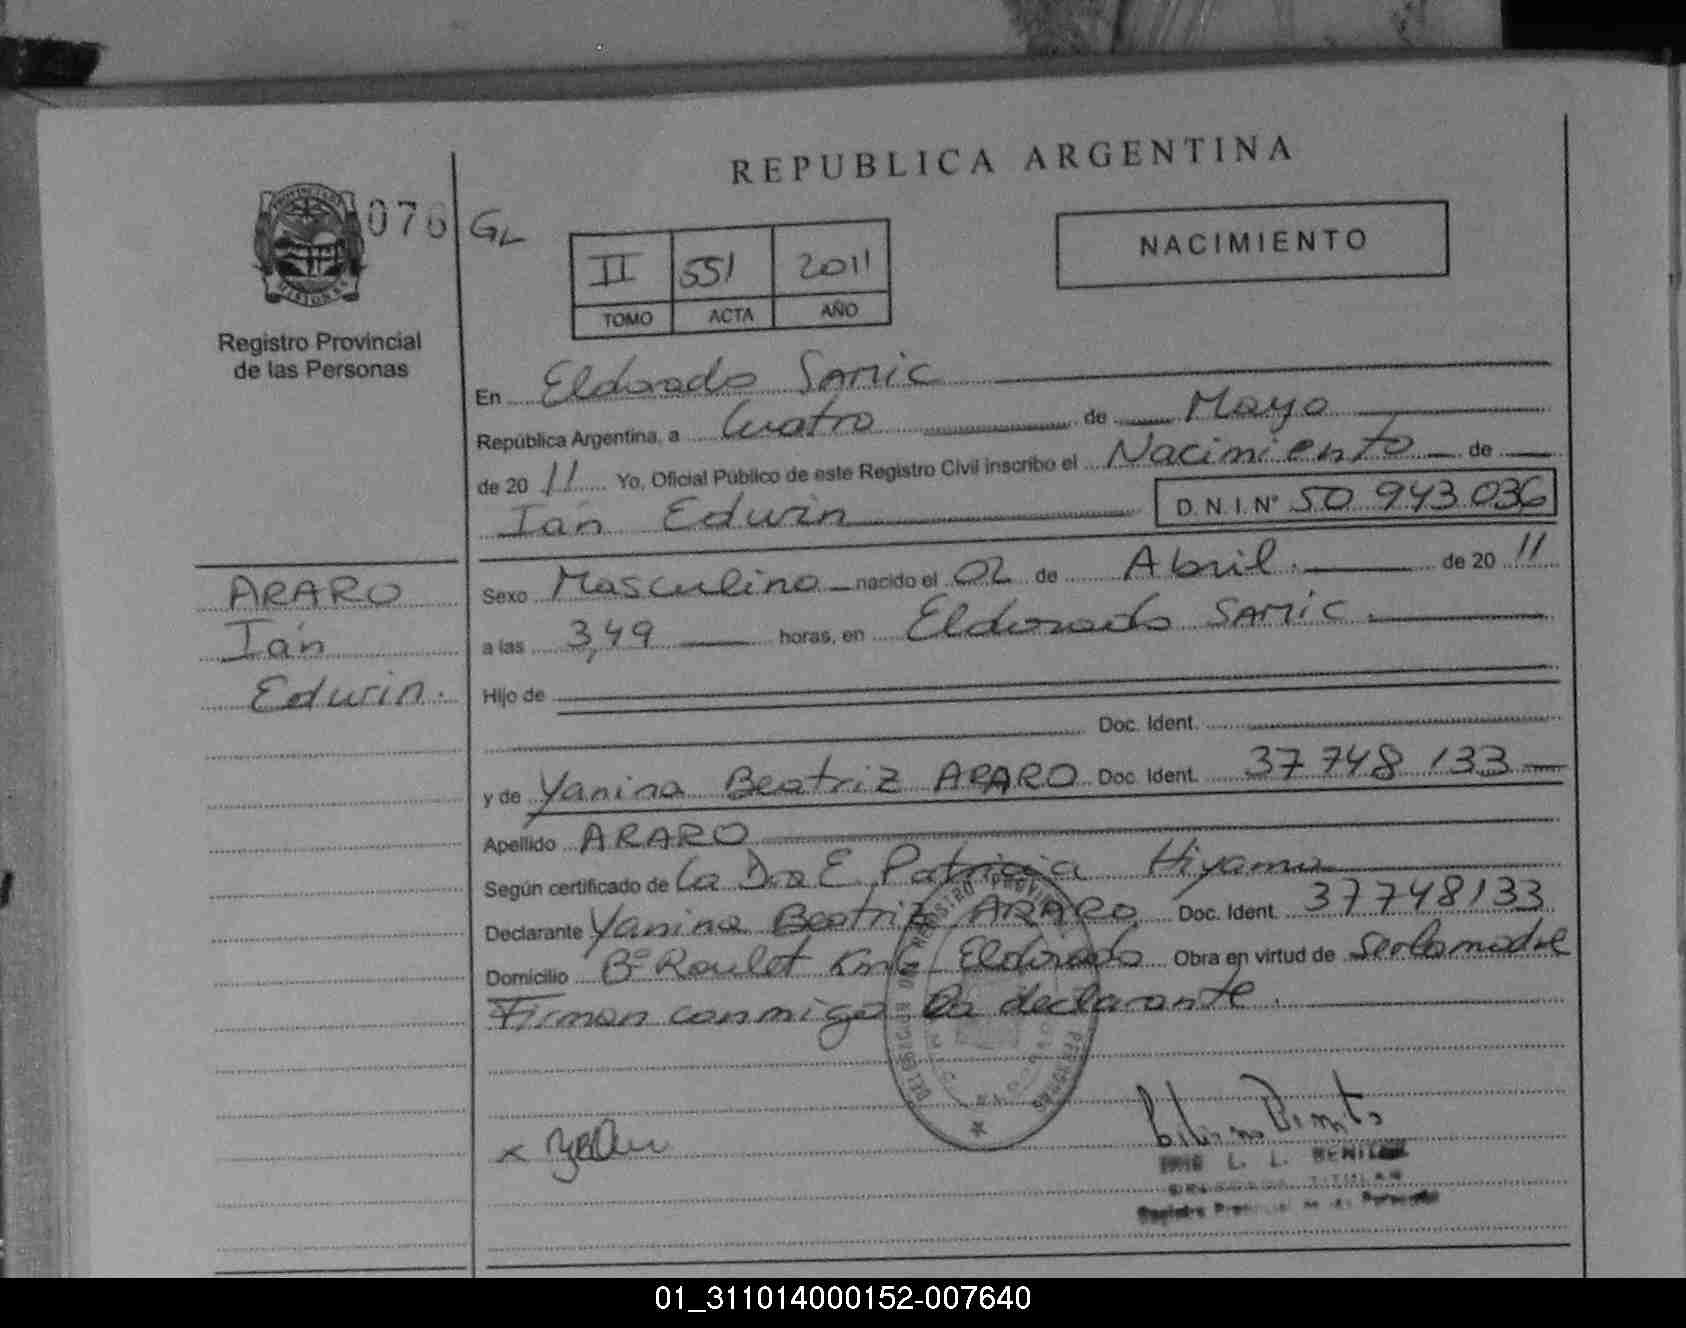 REPUBLICA ARGENTINA
PROVINCIA DE MISIONES
076 GL
II 551 2011
TOMO ACTA AÑO
NACIMIENTO
Registro Provincial
de las Personas
En Eldorado SAMIC
República Argentina, a Cuatro de Mayo
de 20 11 Yo, Oficial Público de este Registro Civil inscribo el Nacimiento de
Ian Edwin D.N.I.N° 50 943.036
ARARO
Ian
Edwin.
Sexo Masculino nacido el 02 de Abril. de 20 11
a las 3,49 horas, en Eldorado SAMIC.
Hijo de
Doc. Ident.
y de Yanina Beatriz ARARO Doc. Ident. 37 748 133
Apellido ARARO
Según certificado de La Dra E. Patricia Hiyama
Declarante Yanina Beatriz ARARO Doc. Ident. 37748133
Domicilio B° Roulet Eldorado Obra en virtud de ser la madre
Firman conmigo la declarante.
x
L. L. BENITEZ
TITULAR
Registro Provincial de las Personas
01_311014000152-007640